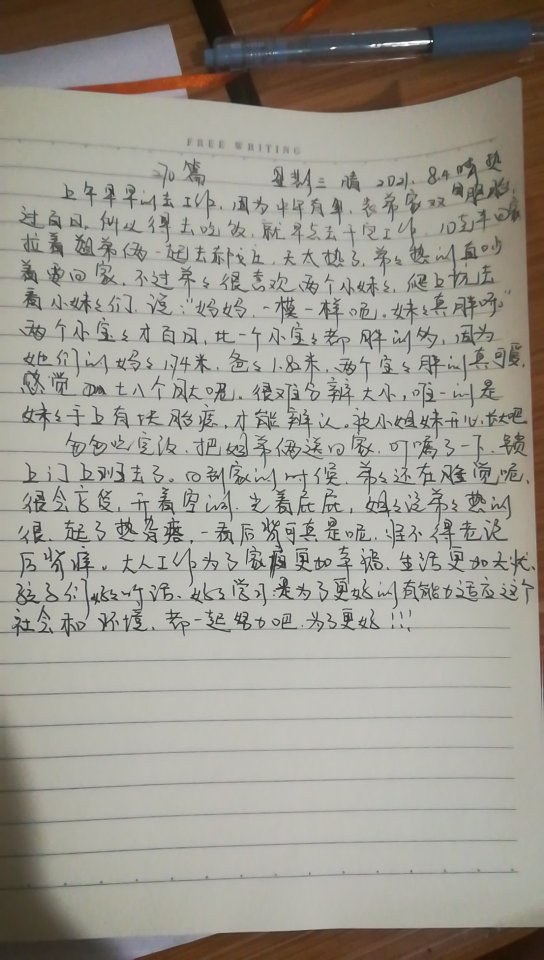 FREE WRITING
270篇 星期三 晴 2021.8.4 晴 热
上午早早的去工作,因为中午有事,表弟家双胞胎
过百日,所以得去吃饭,就早点去干完工作,10点半回家
拉着姐弟俩一起去,天太热了,弟弟热的直吵
着要回家,不过弟弟很喜欢两个小妹妹,爬上炕去
看小妹妹们,说:"妈妈,一模一样呢。妹妹真胖呀"
两个小宝宝才百日,比一个小宝宝都胖的多,因为
她们的妈妈1.74米,爸爸1.82米,两个宝宝胖的真可爱,
感觉七八个月大呢。很难分辨大小,唯一的是
妹妹手上有块胎痣,才能辨认。祝小姐妹开心长大吧
匆匆吃完饭,把姐弟俩送回家,叮嘱了一下,锁
上门上班去了。回到家的时候,弟弟还在睡觉呢,
很会享受,开着空调,光着屁屁,姐姐说弟弟热的
很,起了热痱瘩,一看后背可真是呢,怪不得老说
后背痒。大人工作为了家庭更加幸福,生活更加无忧,
孩子们好好听话,好好学习是为了更好的有能力适应这个
社会和环境,都一起努力吧,为了更好!!!